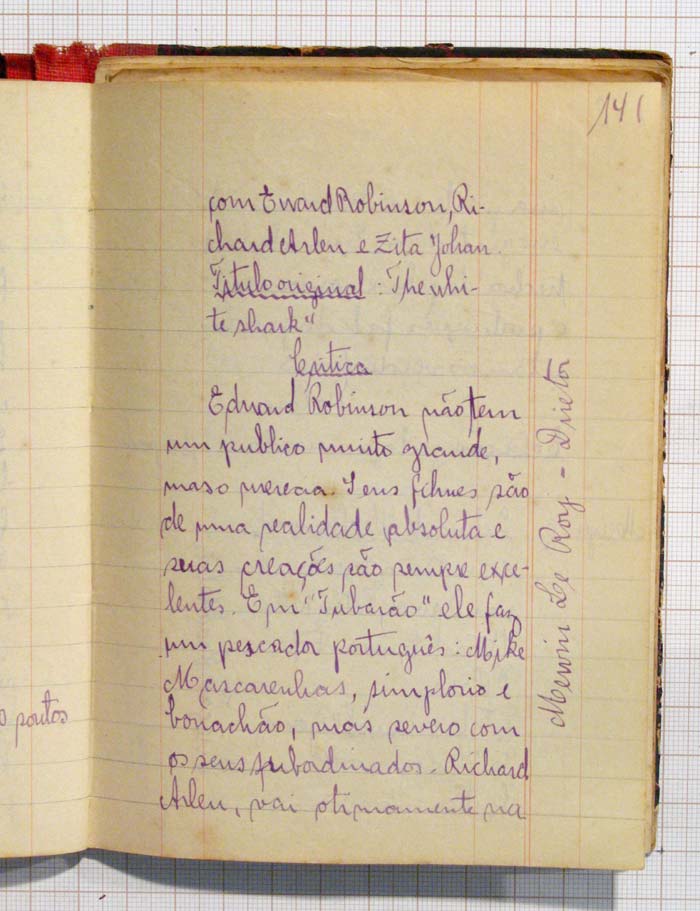 141
com Eward Robinson, Ri-
chard Arlen e Zita Johan.
Titulo original: The whi-
te shark"
Critica
Eduard Robinson não tem
um publico muito grande,
mas o merecia. Seus filmes são
de uma realidade absoluta e
suas creações são sempre exce-
lentes. Em "Tubarão" ele faz
um pescador português: Mike
Mascarenhas, simplorio e
bonachão, mas severo com
os seus subordinados. Richard
Arlen, vai otimamente na
Mervin Le Roy - Diretor
pontos